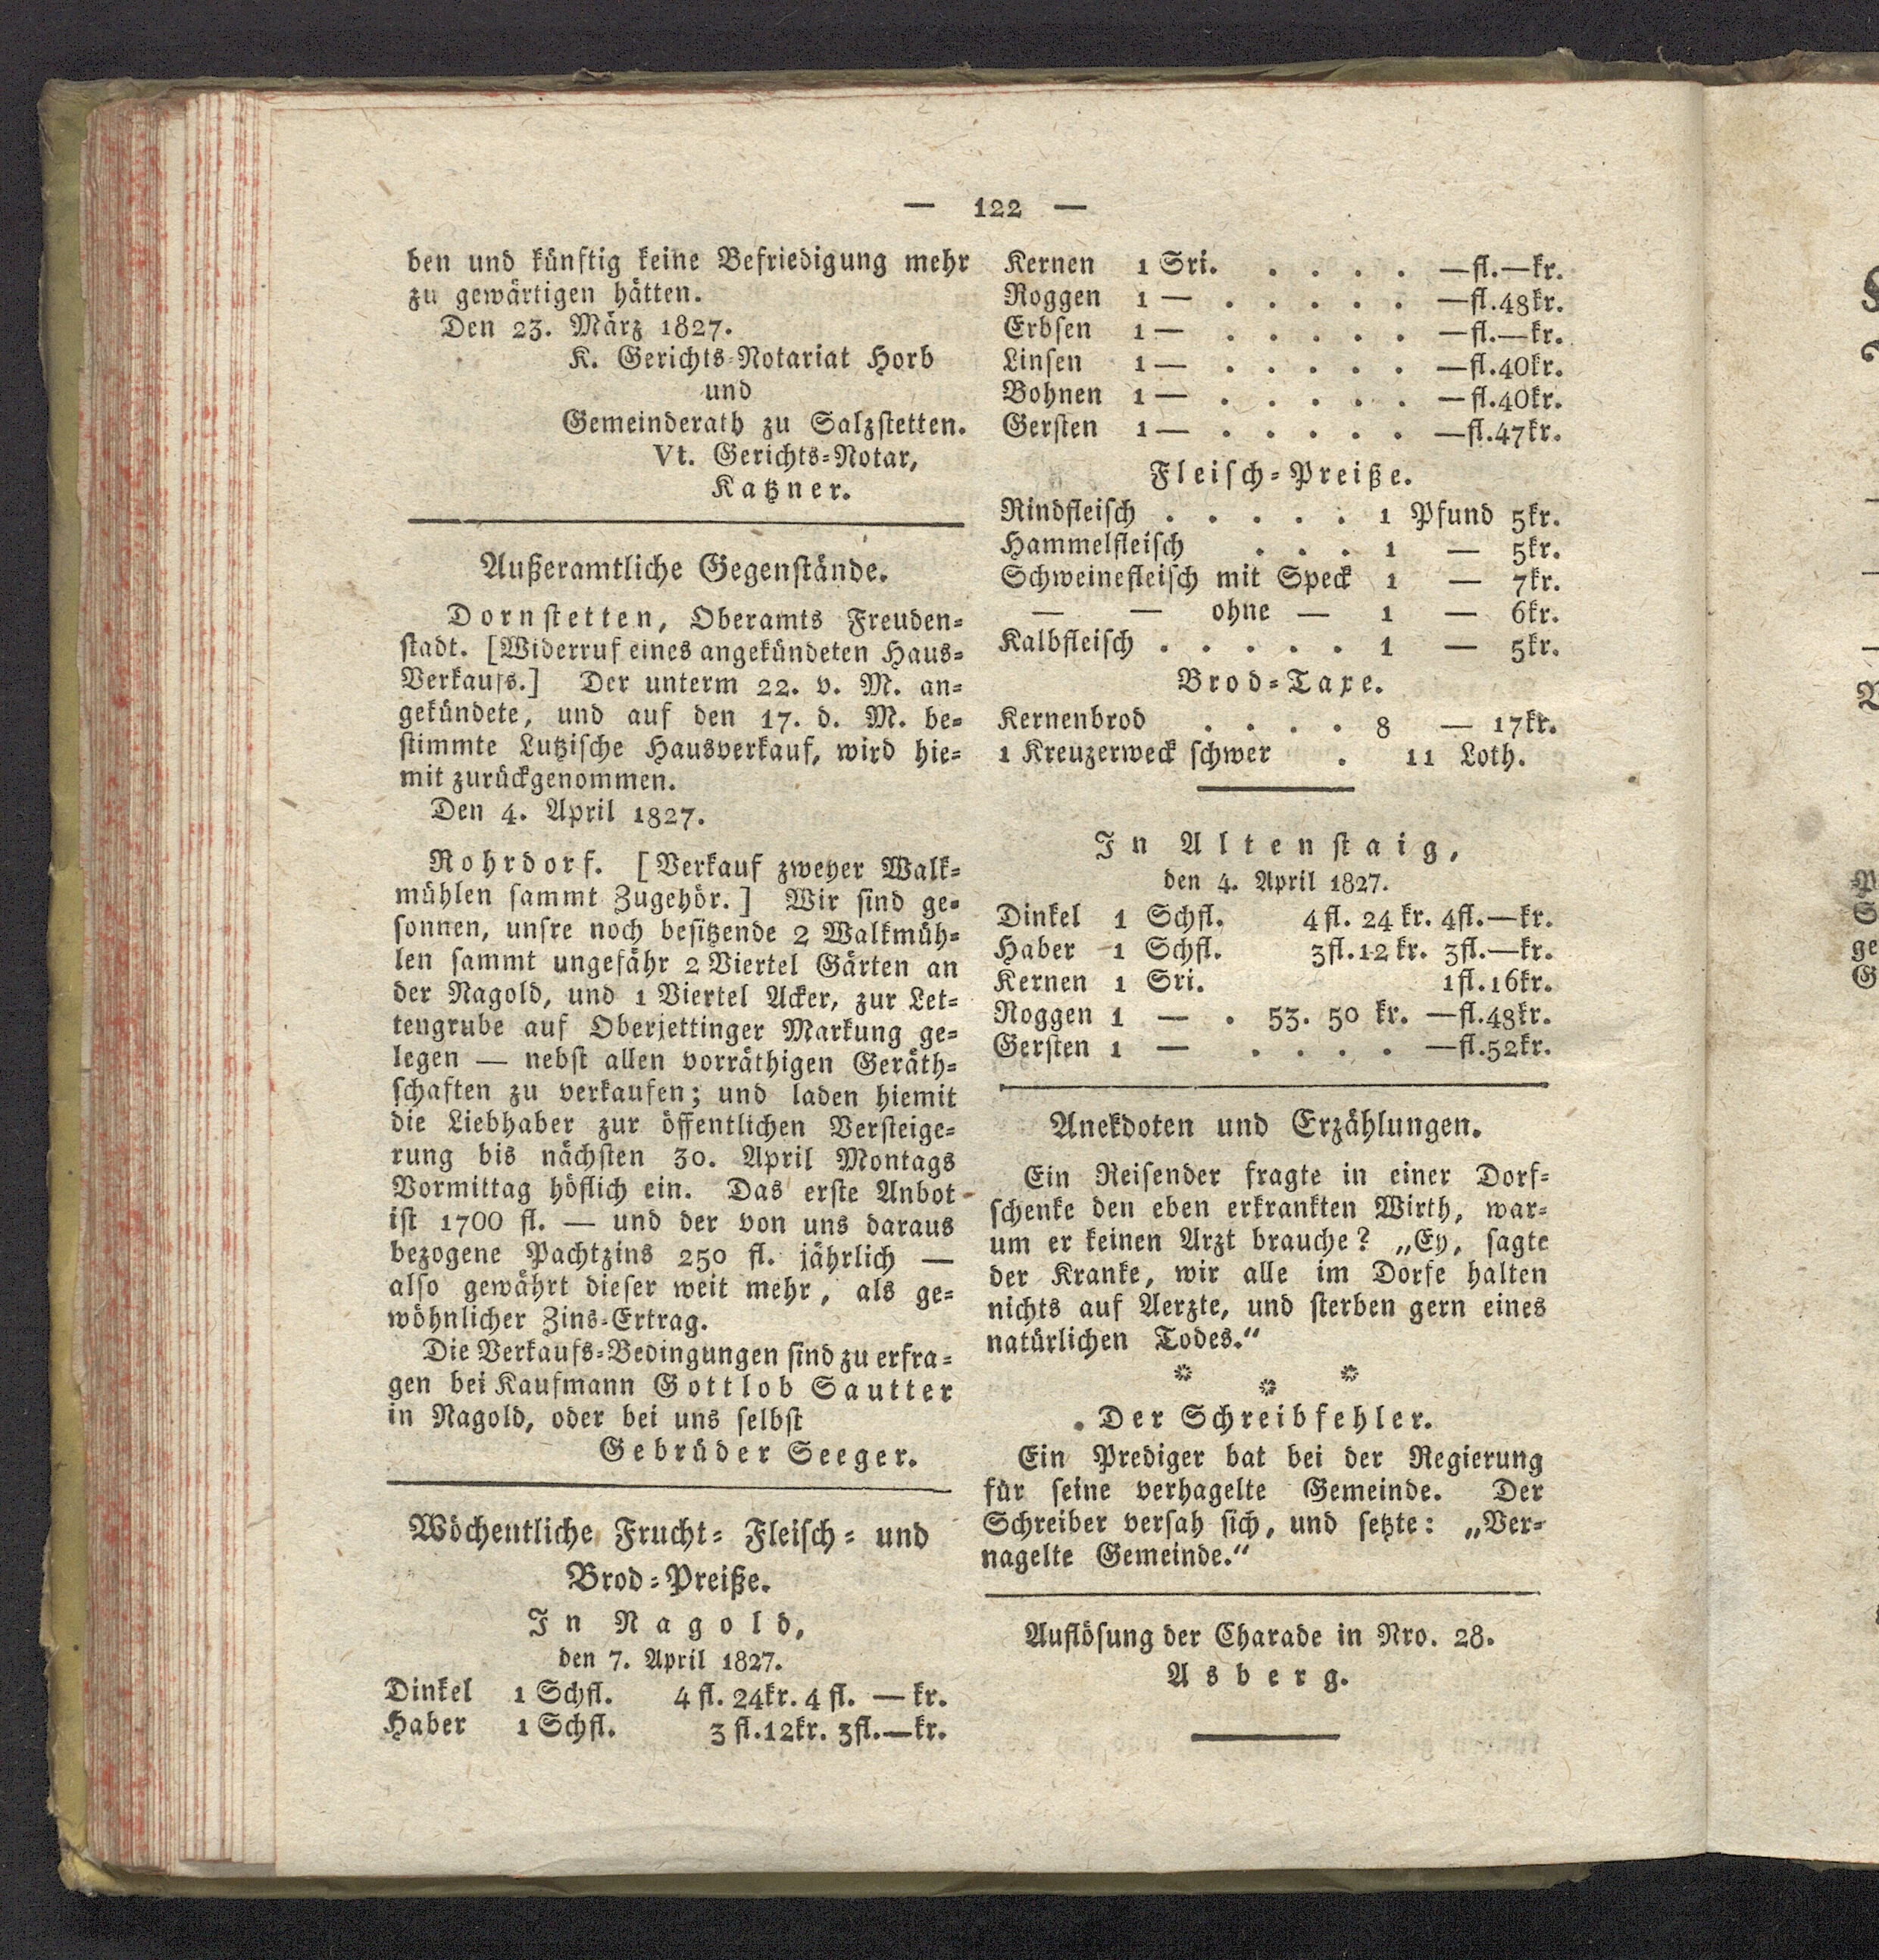 — 122 —
ben und künftig keine Befriedigung mehr
zu gewärtigen hätten.
Den 23. März 1827.
K. Gerichts-Notariat Horb
und
Gemeinderath zu Salzstetten.
Vt. Gerichts-Notar,
Katzner.
Außeramtliche Gegenstände.
Dornstetten, Oberamts Freuden-
stadt. [Widerruf eines angekündeten Haus-
Verkaufs.] Der unterm 22. v. M. an-
gekündete, und auf den 17. d. M. be-
stimmte Lutzische Hausverkauf, wird hie-
mit zurückgenommen.
Den 4. April 1827.
Rohrdorf. [Verkauf zweyer Walk-
mühlen sammt Zugehör.] Wir sind ge-
sonnen, unsre noch besitzende 2 Walkmüh-
len sammt ungefähr 2 Viertel Gärten an
der Nagold, und 1 Viertel Acker, zur Let-
tengrube auf Oberjettinger Markung ge-
legen — nebst allen vorräthigen Geräth-
schaften zu verkaufen; und laden hiemit
die Liebhaber zur öffentlichen Versteige-
rung bis nächsten 30. April Montags
Vormittag höflich ein. Das erste Anbot
ist 1700 fl. — und der von uns daraus
bezogene Pachtzins 250 fl. jährlich —
also gewährt dieser weit mehr, als ge-
wöhnlicher Zins-Ertrag.
Die Verkaufs-Bedingungen sind zu erfra-
gen bei Kaufmann Gottlob Sautter
in Nagold, oder bei uns selbst
Gebrüder Seeger.
Wöchentliche Frucht- Fleisch- und
Brod-Preiße.
In Nagold,
den 7. April 1827.
Dinkel 1 Schfl. 4 fl. 24kr. 4 fl. — kr.
Haber 1 Schfl. 3 fl. 12kr. 3fl.—kr.
Kernen 1 Sri. . . . . . —fl.—kr.
Roggen 1 — . . . . . —fl.48kr.
Erbsen 1 — . . . . . —fl.—kr.
Linsen 1 — . . . . . —fl.40kr.
Bohnen 1 — . . . . . —fl.40kr.
Gersten 1 — . . . . . —fl.47kr.
Fleisch-Preiße.
Rindfleisch . . . . . 1 Pfund 5kr.
Hammelfleisch . . . 1 — 5kr.
Schweinefleisch mit Speck 1 — 7kr.
— — ohne — 1 — 6kr.
Kalbfleisch . . . . . 1 — 5kr.
Brod-Taxe.
Kernenbrod . . . . 8 — 17kr.
1 Kreuzerweck schwer . 11 Loth.
In Altenstaig,
den 4. April 1827.
Dinkel 1 Schfl. 4 fl. 24 kr. 4fl.—kr.
Haber 1 Schfl. 3fl. 12 kr. 3fl.—kr.
Kernen 1 Sri. 1fl. 16kr.
Roggen 1 — . 53. 50 kr. —fl.48kr.
Gersten 1 — . . . . —fl.52kr.
Anekdoten und Erzählungen.
Ein Reisender fragte in einer Dorf-
schenke den eben erkrankten Wirth, war-
um er keinen Arzt brauche? „Ey, sagte
der Kranke, wir alle im Dorfe halten
nichts auf Aerzte, und sterben gern eines
natürlichen Todes.“
* * *
Der Schreibfehler.
Ein Prediger bat bei der Regierung
für seine verhagelte Gemeinde. Der
Schreiber versah sich, und setzte: „Ver-
nagelte Gemeinde.“
Auflösung der Charade in Nro. 28.
Asberg.